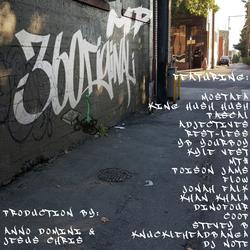 360riginal
FEATURING:
MOSTAFA
KING HUSH HUSH
PASCAL
ADJECTIVES
REST-LESS
YB YOURBOY
KYLE WEST
MTA
POISON JAMS
FLOW
JONAH FALA
KHAN KHALA
DINOFOUR
COOL
STEVEY D
KNUCKITHEADBANGA
DJ NOTE
PRODUCTION BY:
ANNO DOMINI &
JESUS CHRIS